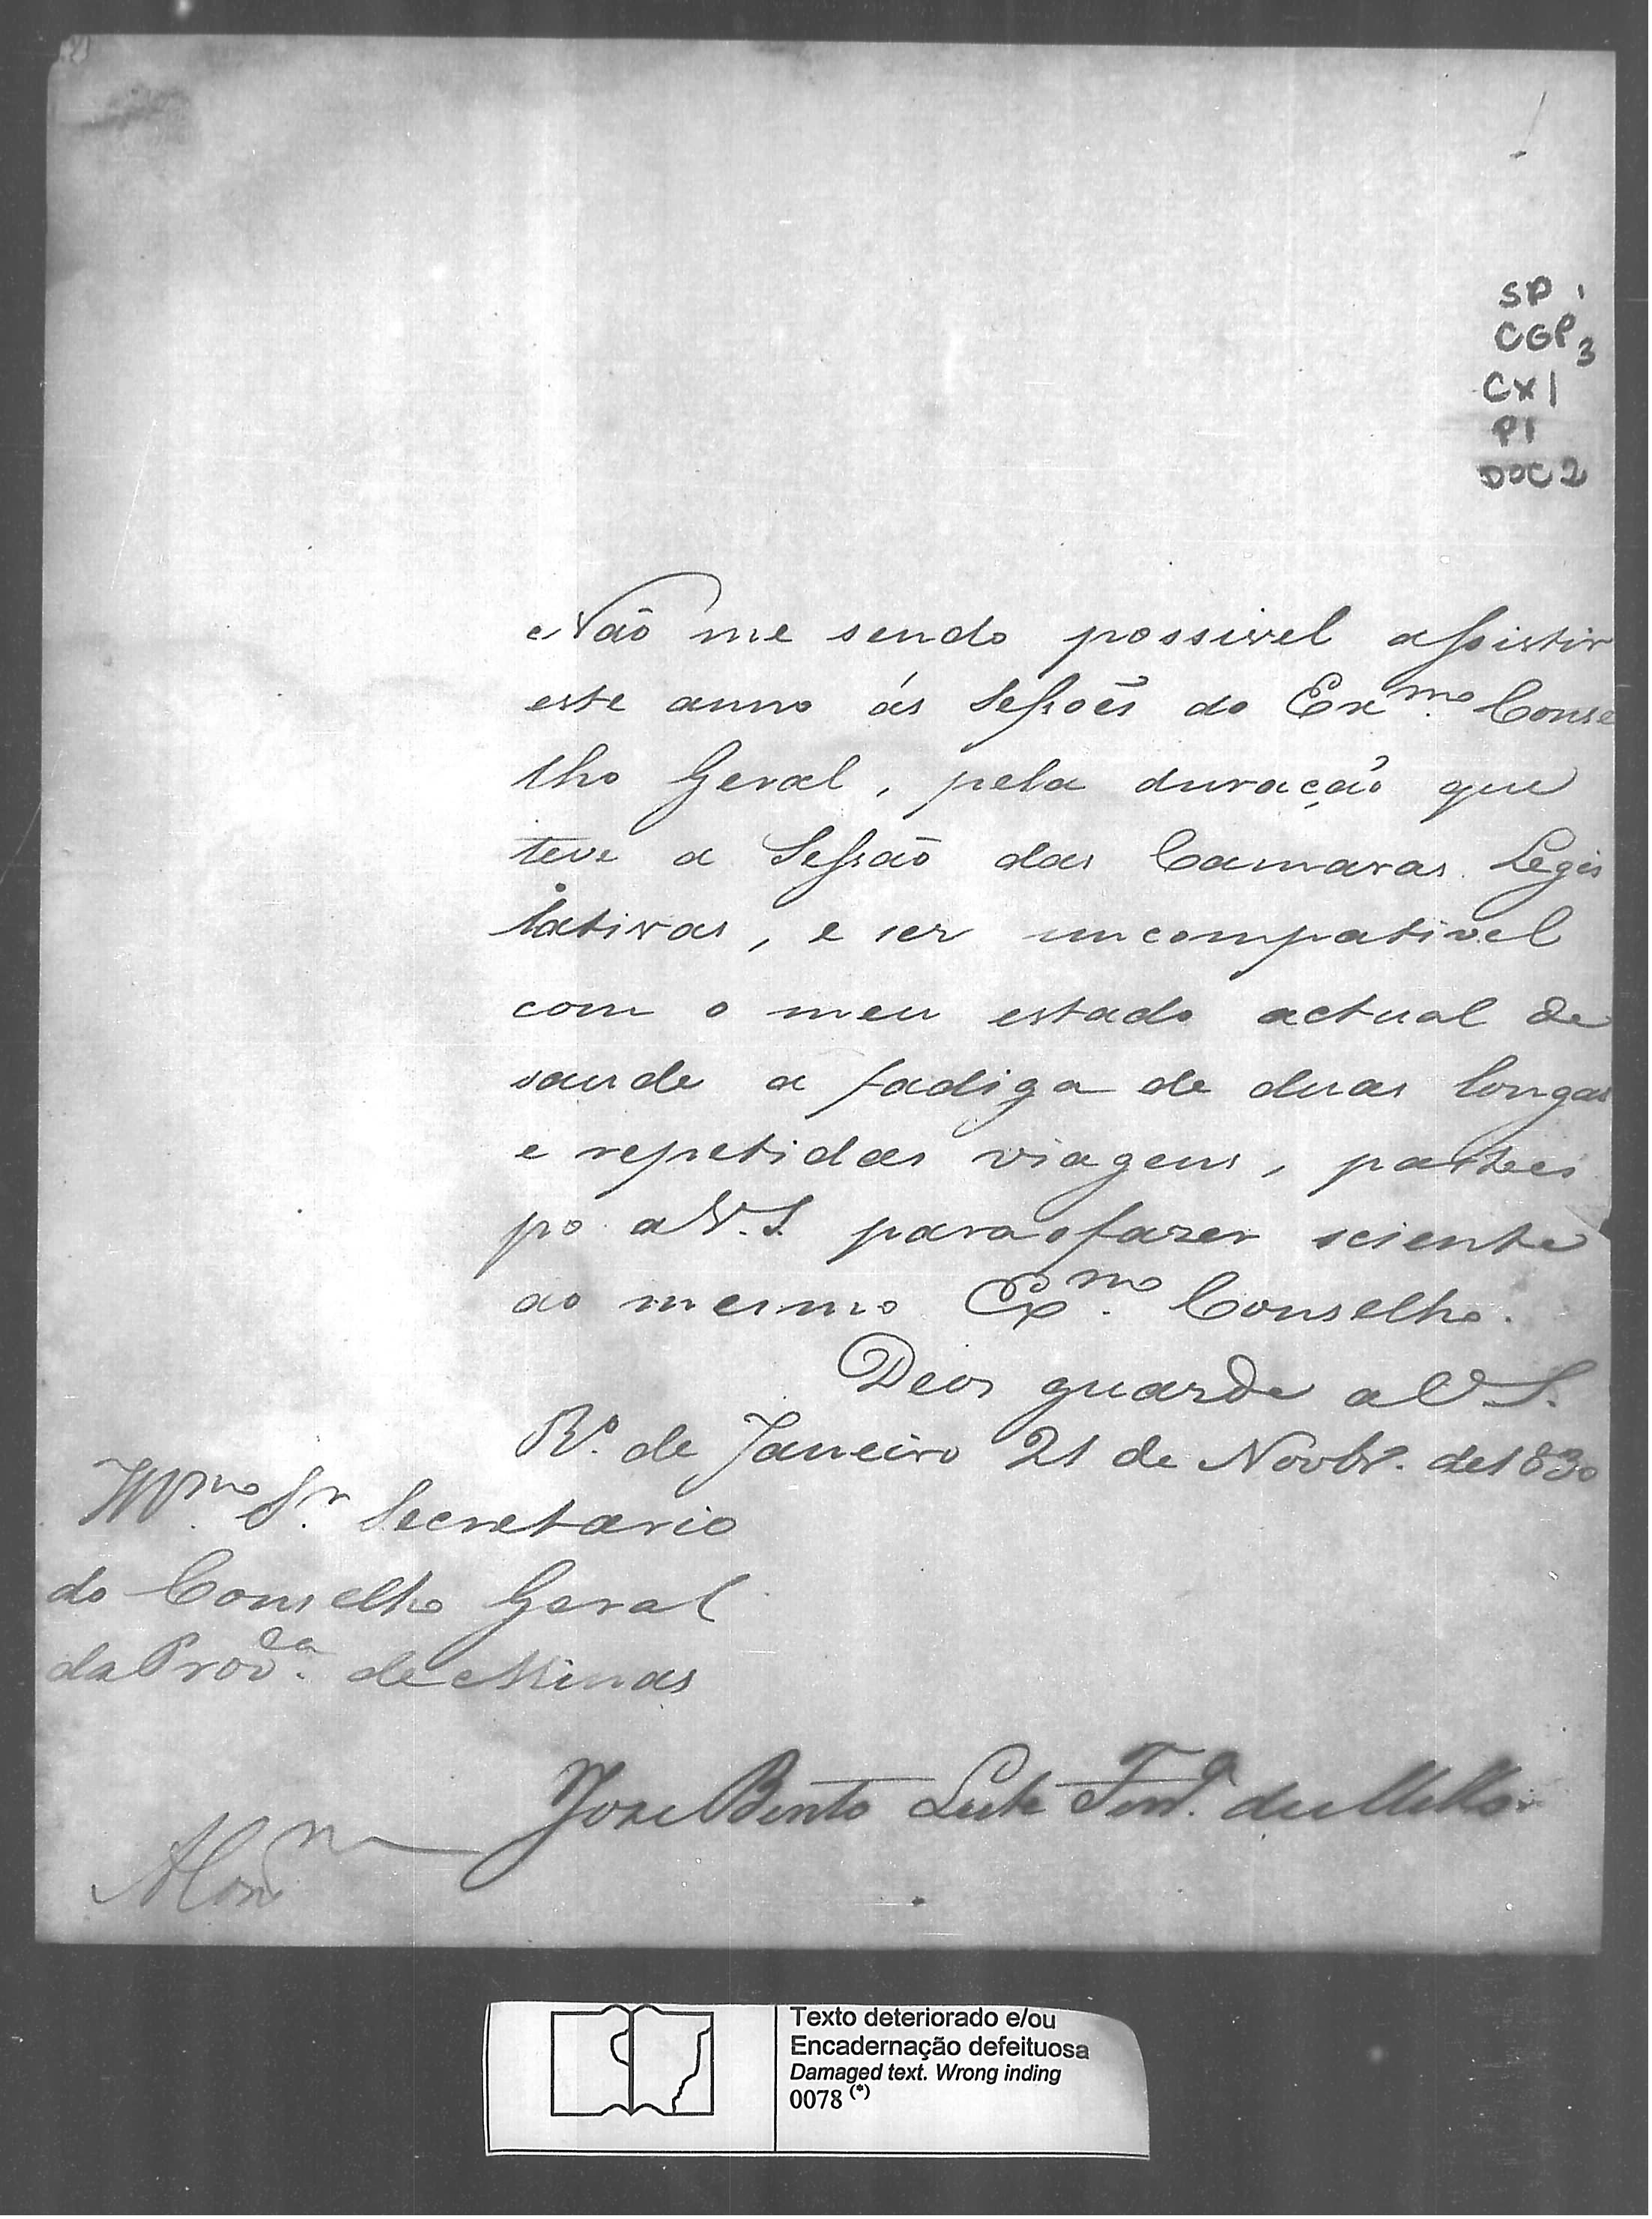 SP 1
CGP 3
CX 1
P1
DOC 2
Não me sendo possivel assistir
este anno ás Sessões do Exmo. Conse
lho Geral, pela duração que
teve a Sessão das Camaras Legis
lativas, e ser incompativel
com o meu estado actual de
saude a fadiga de duas longas
e repetidas viagens, partici
po a V.S. para o fazer sciente
ao mesmo Exmo. Conselho.
Deos guarde a V.S.
Ro. de Janeiro 21 de Novbr. de 1830
Illmo. Sr. Secretario
do Conselho Geral
da Provca. de Minas
Jose Bento Leite Ferra. de Mello
Texto deteriorado e/ou
Encadernação defeituosa
Damaged text. Wrong inding
0078 (*)